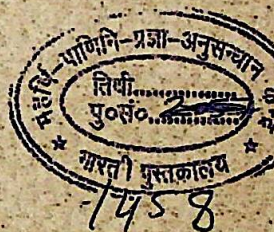 महर्षि-पाणिनि-प्रज्ञा-अनुसन्धान
तिथी..............
पु०सं०..............
भारती पुस्तकालय
1458